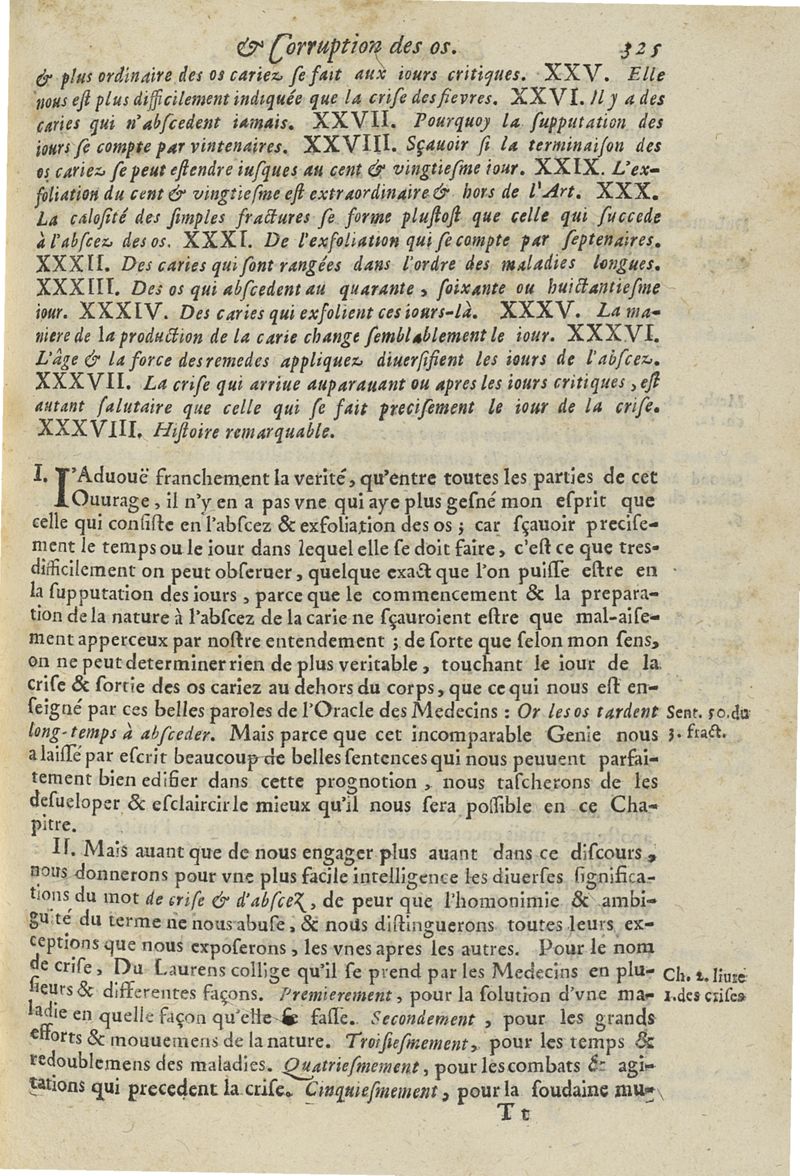 & Corruption des os. 325
& plus ordinaire des os cariez ſe fait aux iours critiques. XXV. Elle
nous eſt plus difficilement indiquée que la criſe des fievres. XXVI. Il y a des
caries qui n'abſcedent iamais. XXVII. Pourquoy la ſupputation des
iours ſe compte par vintenaires. XXVIII. Sçauoir ſi la terminaiſon des
os cariez ſe peut eſtendre iuſques au cent & vingtieſme iour. XXIX. L'ex-
foliation du cent & vingtieſme eſt extraordinaire & hors de l'Art. XXX.
La caloſité des ſimples fractures ſe forme pluſtoſt que celle qui ſuccede
à l'abſcez des os. XXXI. De l'exfoliation qui ſe compte par ſeptenaires.
XXXII. Des caries qui ſont rangées dans l'ordre des maladies longues.
XXXIII. Des os qui abſcedent au quarante, ſoixante ou huictantieſme
iour. XXXIV. Des caries qui exfolient ces iours-là. XXXV. La ma-
niere de la production de la carie change ſemblablement le iour. XXXVI.
L'âge & la force des remedes appliquez diuerſifient les iours de l'abſcez.
XXXVII. La criſe qui arriue auparauant ou apres les iours critiques, eſt
autant ſalutaire que celle qui ſe fait preciſement le iour de la criſe.
XXXVIII. Hiſtoire remarquable.
I. I'Aduouë franchement la verité, qu'entre toutes les parties de cet
Ouurage, il n'y en a pas vne qui aye plus geſné mon eſprit que
celle qui conſiſte en l'abſcez & exfoliation des os; car ſçauoir preciſe-
ment le temps ou le iour dans lequel elle ſe doit faire, c'eſt ce que tres-
difficilement on peut obſeruer, quelque exact que l'on puiſſe eſtre en
la ſupputation des iours, parce que le commencement & la prepara-
tion de la nature à l'abſcez de la carie ne ſçauroient eſtre que mal-aiſe-
ment apperceux par noſtre entendement; de ſorte que ſelon mon ſens,
on ne peut determiner rien de plus veritable, touchant le iour de la
criſe & ſortie des os cariez au dehors du corps, que ce qui nous eſt en-
ſeigné par ces belles paroles de l'Oracle des Medecins: Or les os tardent Sent. 50. du
long-temps à abſceder. Mais parce que cet incomparable Genie nous 3. fract.
a laiſſé par eſcrit beaucoup de belles ſentences qui nous peuuent parfai-
tement bien edifier dans cette prognotion, nous taſcherons de les
deſueloper & eſclaircir le mieux qu'il nous ſera poſſible en ce Cha-
pitre.
II. Mais auant que de nous engager plus auant dans ce diſcours,
nous donnerons pour vne plus facile intelligence les diuerſes ſignifica-
tions du mot de criſe & d'abſcez, de peur que l'homonimie & ambi-
guité du terme ne nous abuſe, & nous diſtinguerons toutes leurs ex-
ceptions que nous expoſerons, les vnes apres les autres. Pour le nom
de criſe, Du Laurens collige qu'il ſe prend par les Medecins en plu- Ch. 2. liure
ſieurs & differentes façons. Premierement, pour la ſolution d'vne ma- 1. des criſes
ladie en quelle façon qu'elle ſe faſſe. Secondement, pour les grands
efforts & mouuemens de la nature. Troiſieſmement, pour les temps &
redoublemens des maladies. Quatrieſmement, pour les combats & agi-
tations qui precedent la criſe. Cinquieſmement, pour la ſoudaine mu-
T t